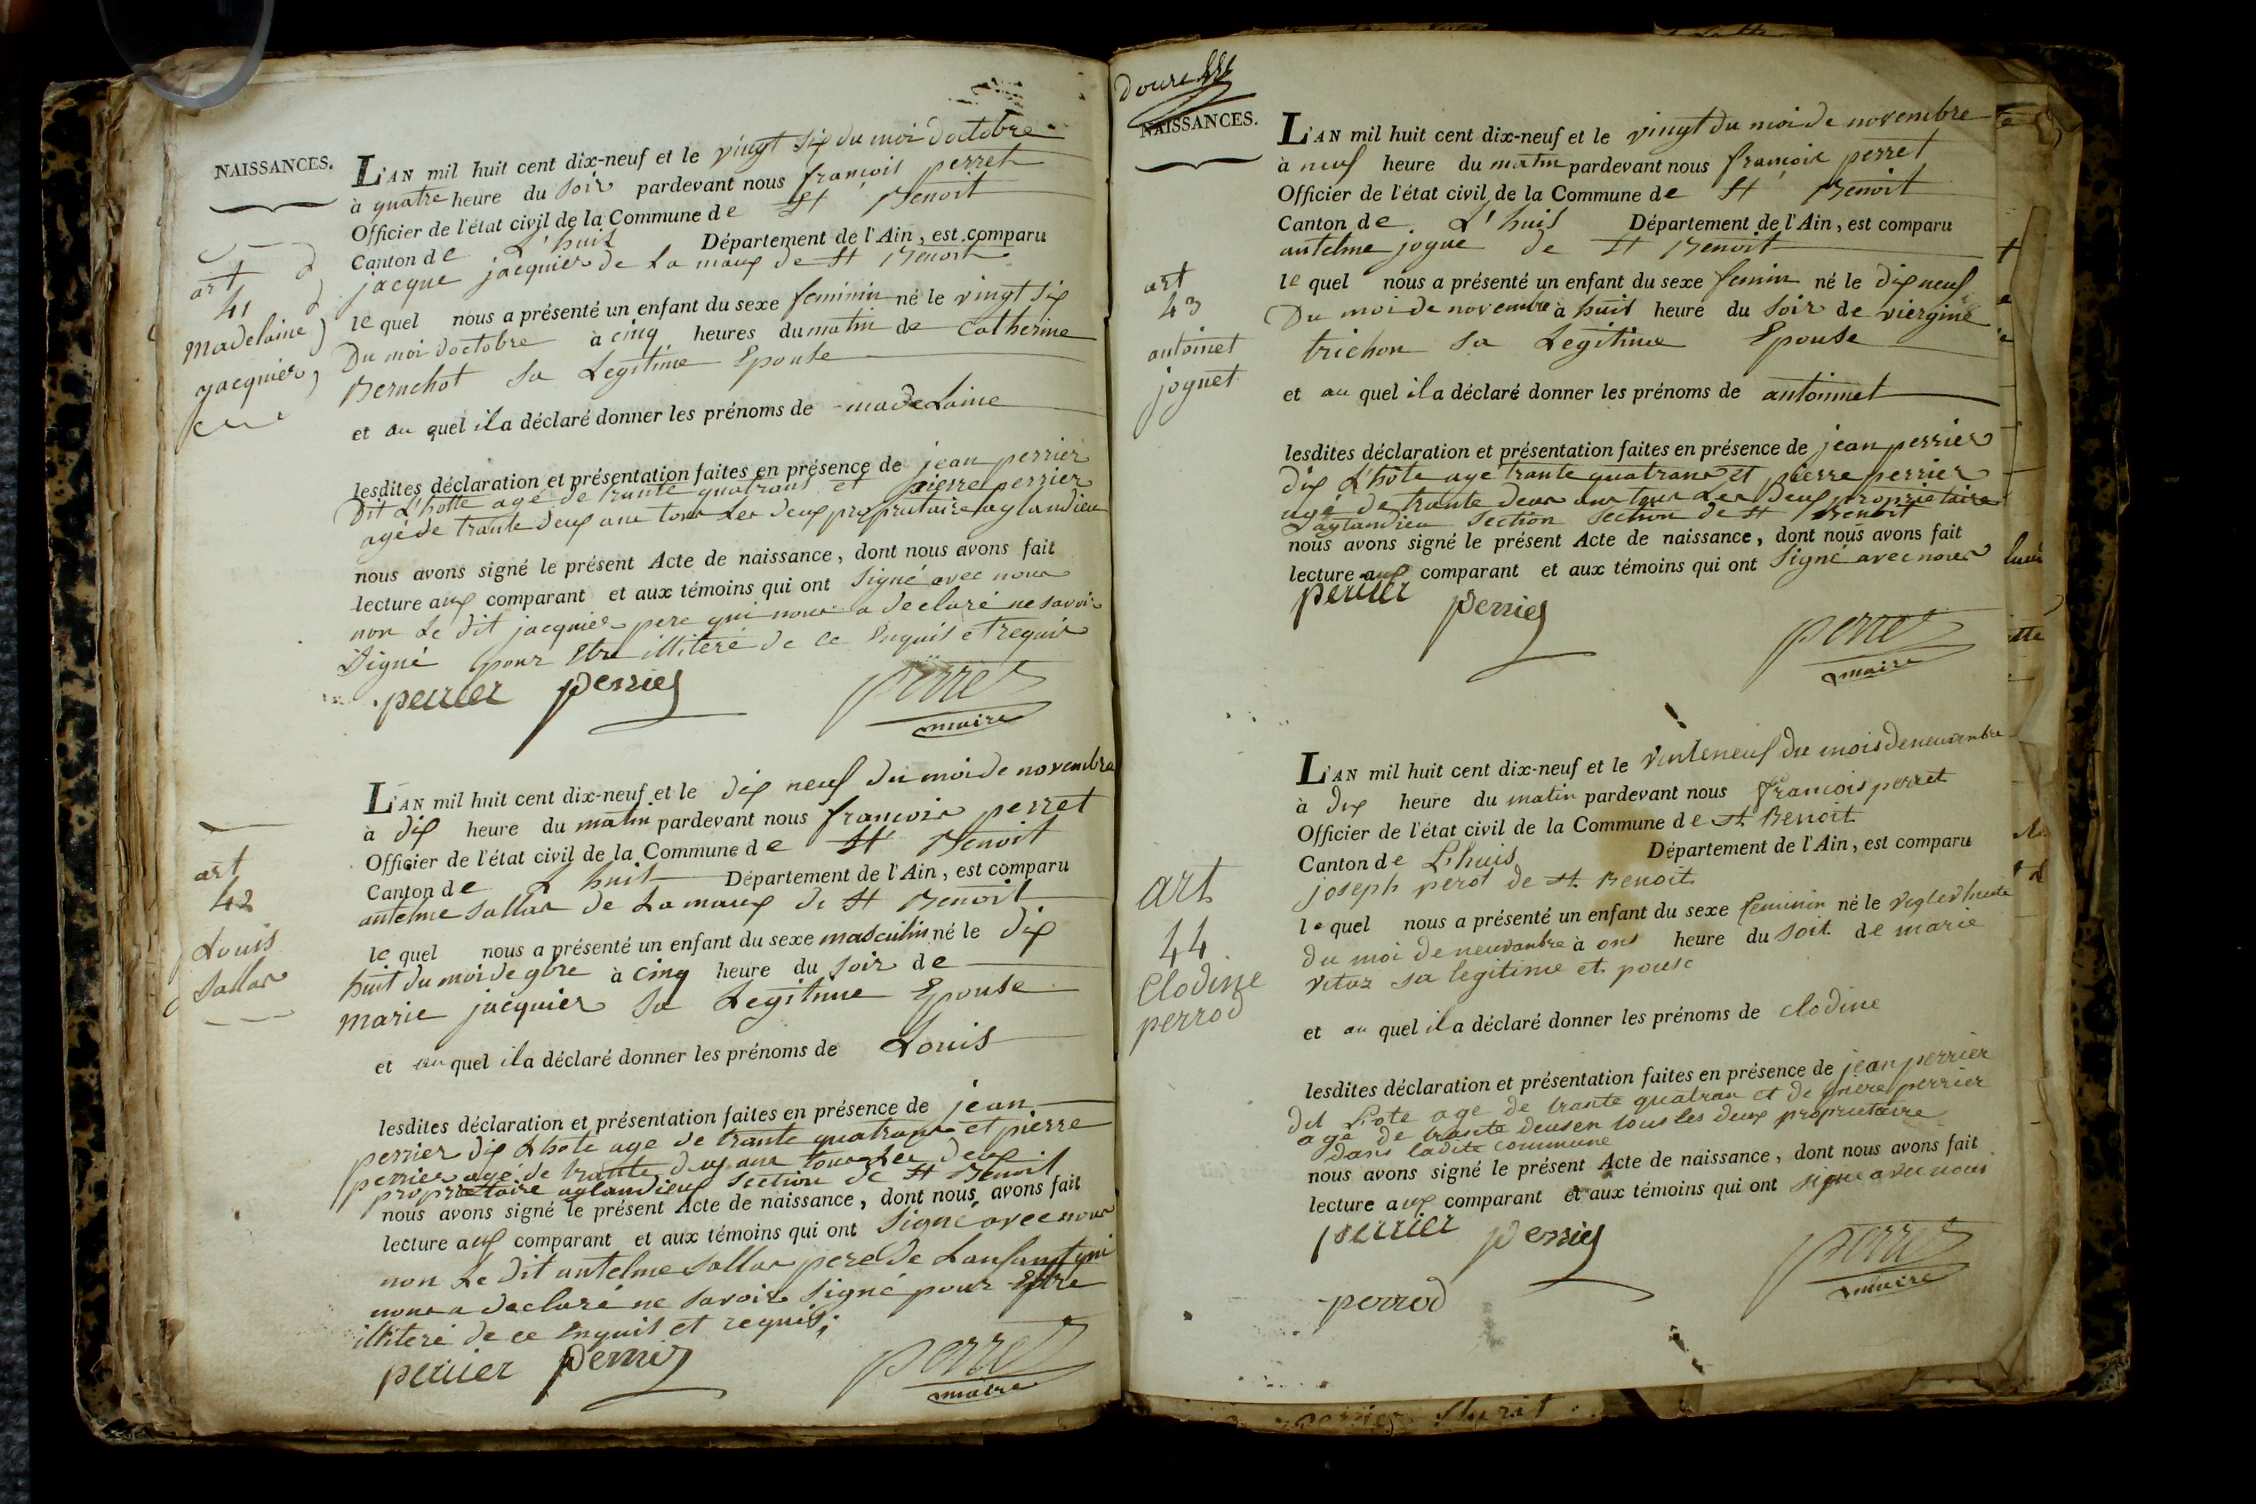 NAISSANCES.
art
41
Madelaine
jacquier
L'AN mil huit cent dix-neuf et le vingt six du moi doctobre
à quatre heure du soir pardevant nous françois perret
Officier de l'état civil de la Commune de St Benoit
Canton de L'huis Département de l'Ain, est comparu
jacque jacquier de La maux de St Benoit
le quel nous a présenté un enfant du sexe feminin né le vingt six
Du moi doctobre à cinq heures du matin de Catherine
Bernchot sa Legitime Epouse
et au quel il a déclaré donner les prénoms de madeLaine
lesdites déclaration et présentation faites en présence de jean perrier
Dit L'hotte agé de trante quatrans et pierre perrier
agé de trante deux ans tous Les deux proprietaire aglandieu
nous avons signé le présent Acte de naissance, dont nous avons fait
lecture aux comparant et aux témoins qui ont signé avec nous
non Le dit jacquier pere qui nous a declaré ne savoir
Signé pour Etre illiteré de ce Enquis et requis
perrier perrier perret
maire
art
42
Louis
Sallas
L'AN mil huit cent dix-neuf et le dix neuf du moi de novembre
à dix heure du matin pardevant nous françois perret
Officier de l'état civil de la Commune de St Benoit
Canton de L'huis Département de l'Ain, est comparu
antelme sallas de La maux de St Benoit
le quel nous a présenté un enfant du sexe masculin né le dix
huit du moi de 9bre à cinq heure du soir de
Marie jacquier sa Legitime Epouse
et au quel il a déclaré donner les prénoms de Louis
lesdites déclaration et présentation faites en présence de jean
perrier dix Lhote age de trante quatrans et pierre
perrier agé de trante deux ans tous Les deux
proprietaire aglandieu section de St Benoit
nous avons signé le présent Acte de naissance, dont nous avons fait
lecture aux comparant et aux témoins qui ont signé avec nous
non Le Dit antelme Sallas pere De Lanfant qui
nous a declaré ne savoir signé pour Estre
illiteré de ce Enquis et requis;
perrier perrier perret
maire
NAISSANCES.
art
43
antoinet
joguet
L'AN mil huit cent dix-neuf et le vingt du moi de novembre
à neuf heure du matin pardevant nous françois perret
Officier de l'état civil de la Commune de St Benoit
Canton de L'huis Département de l'Ain, est comparu
antelme jogue de St Benoit
le quel nous a présenté un enfant du sexe femin né le dix neuf
Du moi de novembre à huit heure du soir de viergine
trichon sa Legitime Epouse
et au quel il a déclaré donner les prénoms de antoinnet
lesdites déclaration et présentation faites en présence de jean perrier
dix L'hôte age trante quatrans et pierre perrier
agé de trante deux ans tous Les deux propriétaire
aglandieu section section de St Benoit
nous avons signé le présent Acte de naissance, dont nous avons fait
lecture aux comparant et aux témoins qui ont signé avec nous
perrier perrier perret
maire
art
44
Clodine
perrod
L'AN mil huit cent dix-neuf et le vinteneuf du mois de neuvanbre
à dix heure du matin pardevant nous françois perret
Officier de l'état civil de la Commune de St Benoit
Canton de L'huis Département de l'Ain, est comparu
joseph perot de St Benoit
le quel nous a présenté un enfant du sexe feminin né le
du moi de neuvanbre à ons heure du soit de marie
vitoz sa legitime et pouse
et au quel il a déclaré donner les prénoms de clodine
lesdites déclaration et présentation faites en présence de jean perrier
dit L'ote age de trante quatran et de pierre perrier
age de trante deusen tous les deux proprietaire
dans ladite commune
nous avons signé le présent Acte de naissance, dont nous avons fait
lecture aux comparant et aux témoins qui ont signe avec nous
perrier perrier perret
maire
perrod